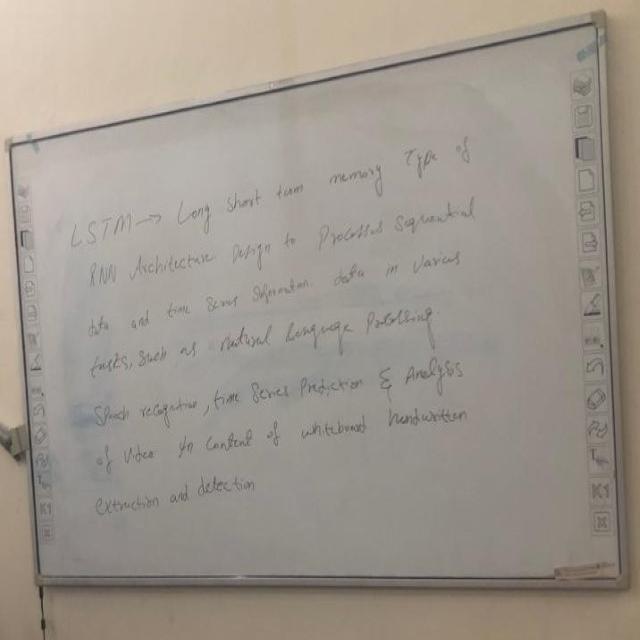 LSTM → Long short term memory Type of
RNN Architecture Design to Processes Sequential
data and time Series Information data in various
tasks, such as Natural Language Processing
Speech recognition, time Series Prediction & Analysis
of video in content of whiteboard handwritten
extraction and detection